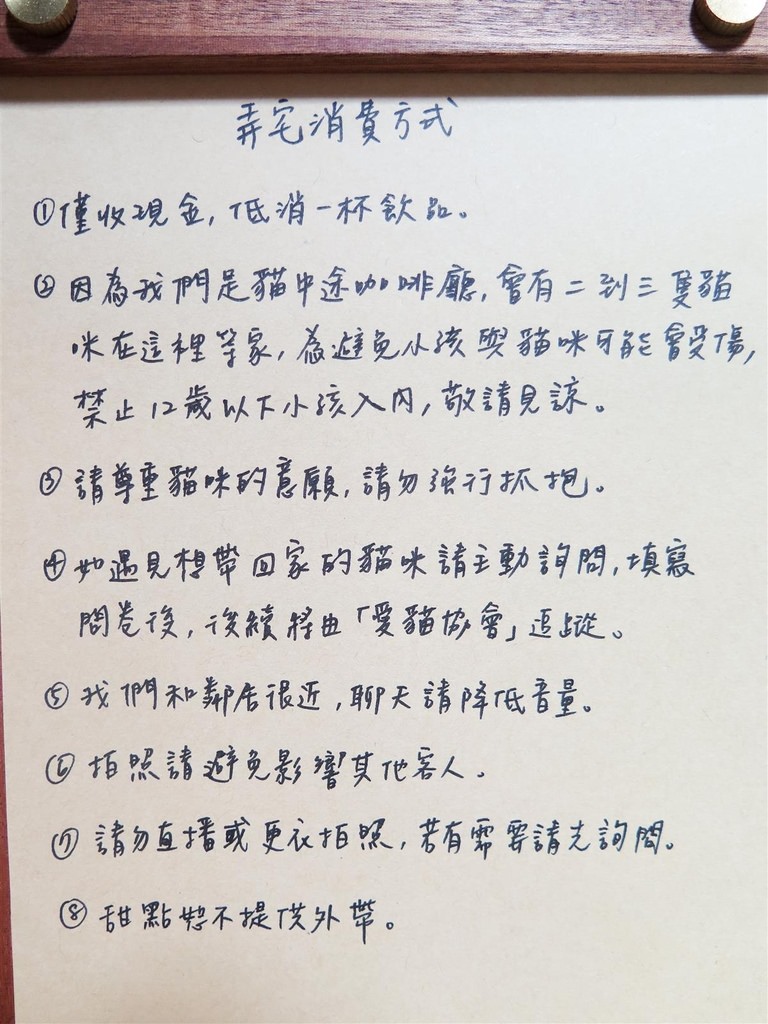 弄宅消費方式
①僅收現金,低消一杯飲品。
②因為我們是貓中途咖啡廳,會有二到三隻貓
咪在這裡等家,為避免小孩與貓咪可能會受傷,
禁止12歲以下小孩入內,敬請見諒。
③請尊重貓咪的意願,請勿強行抓抱。
④如遇見想帶回家的貓咪請主動詢問,填寫
問卷後,後續將由「愛貓協會」追蹤。
⑤我們和鄰居很近,聊天請降低音量。
⑥拍照請避免影響其他客人。
⑦請勿直播或更衣拍照,若有需要請先詢問。
⑧甜點恕不提供外帶。